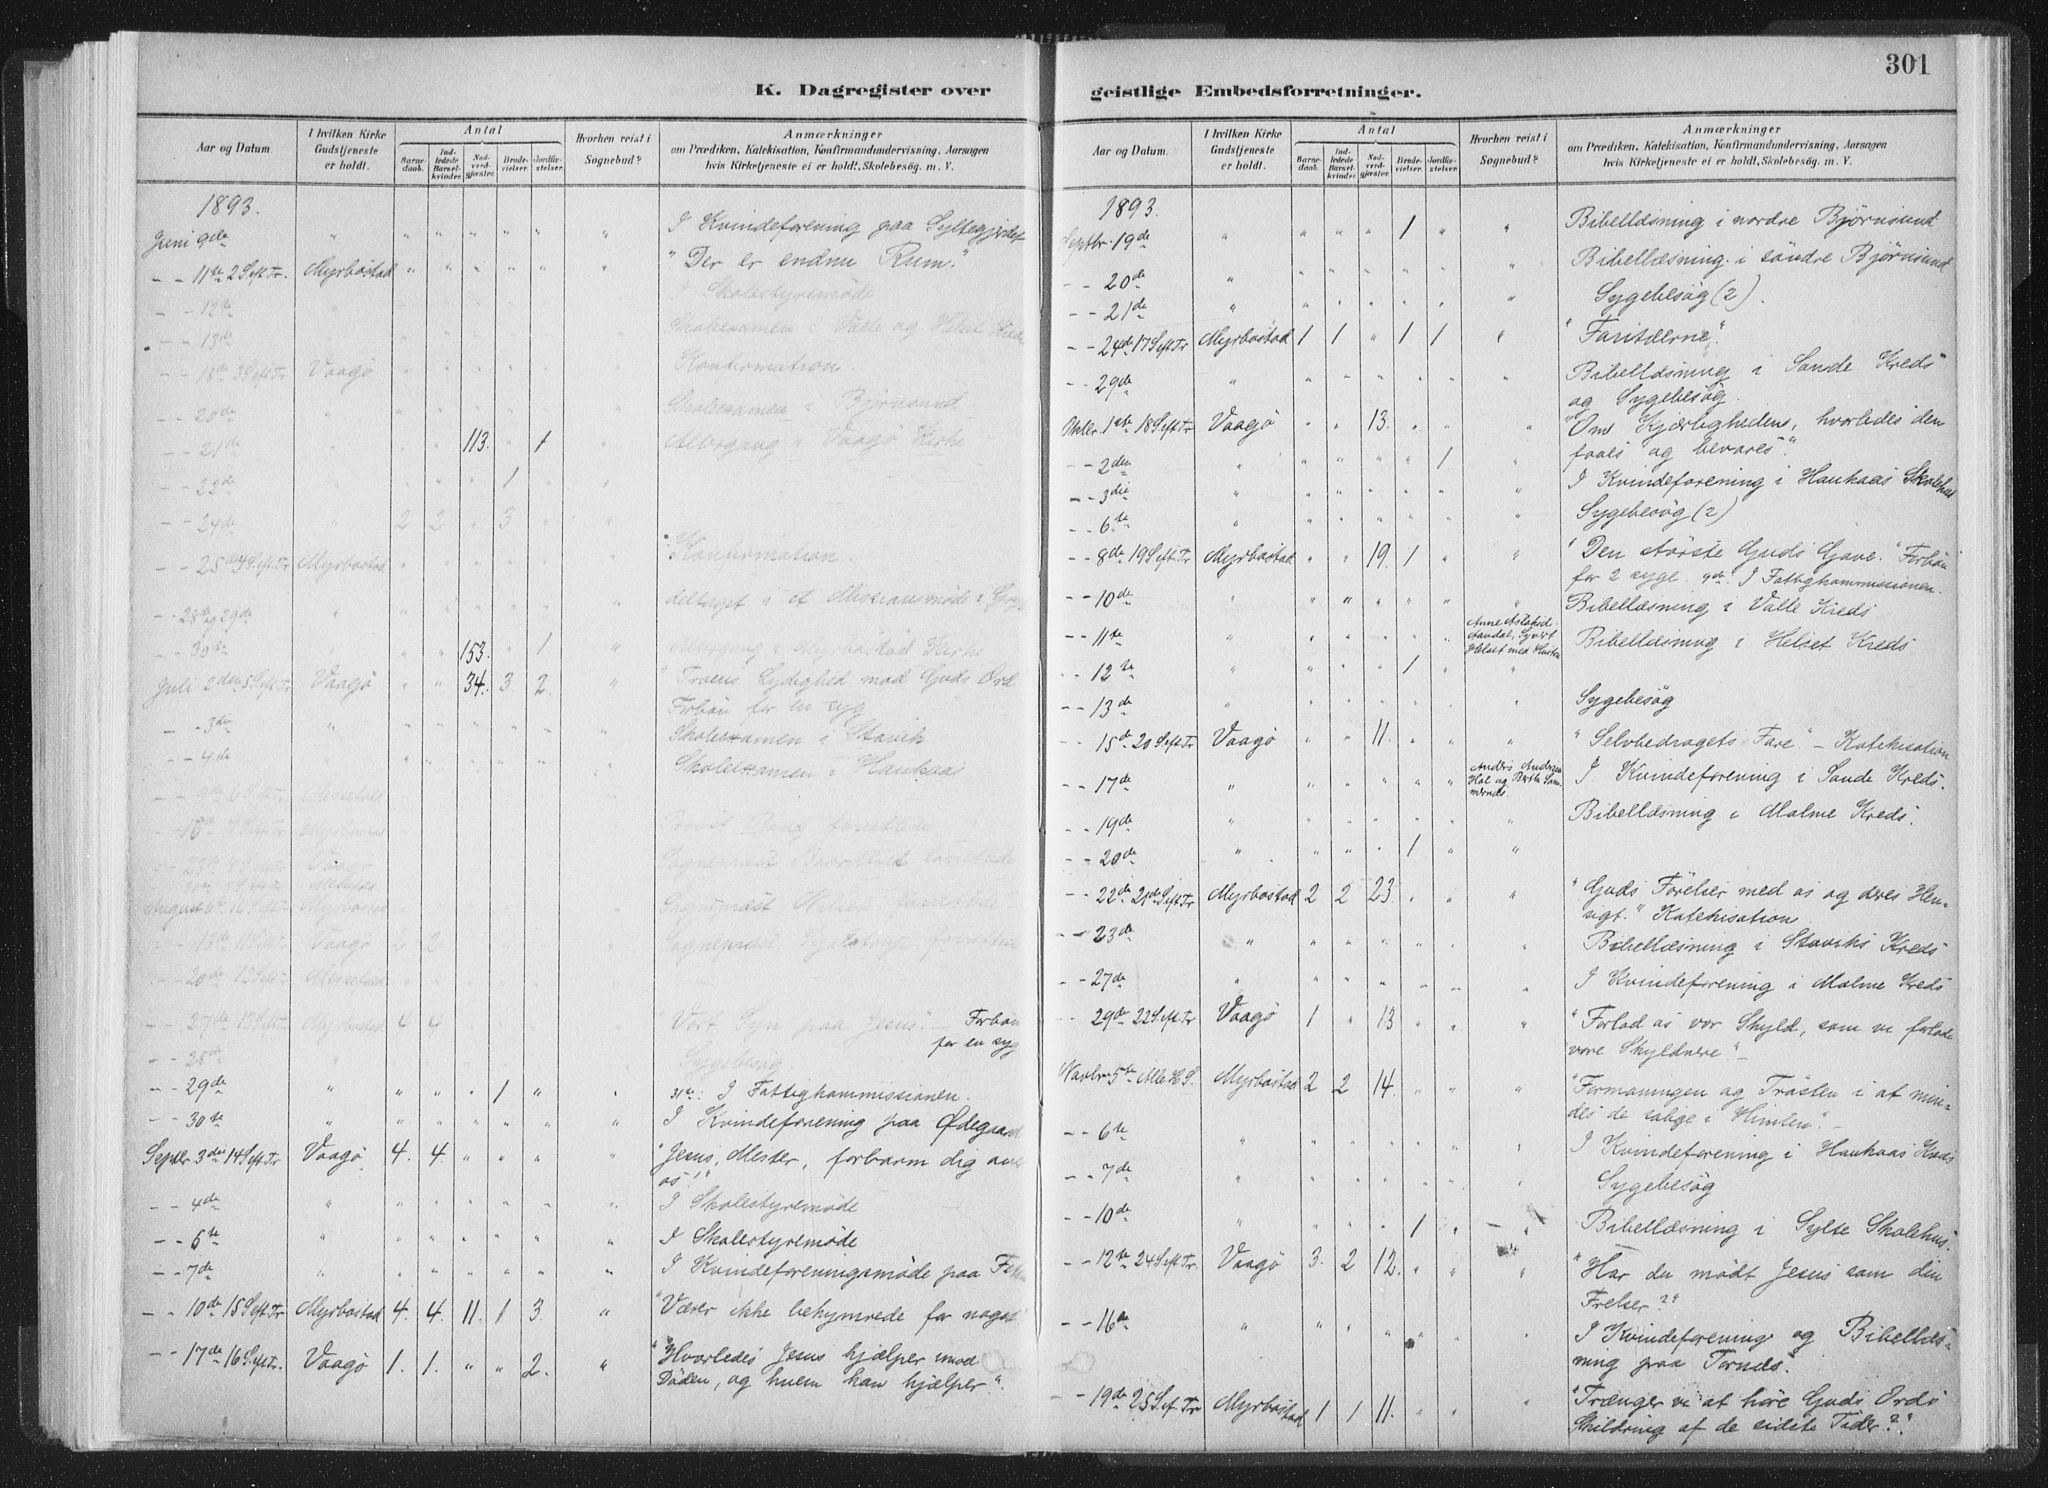 301
K. Dagregister over geistlige Embedsforretninger.
Aar og Datum.
I hvilken Kirke Gudstjeneste er holdt.
Antal
Barnedaab.
Indledede Barselkvinder.
Nadverdgjester.
Brudevielser.
Jordfæstelser.
Hvorhen reist i Sognebud?
Anmærkninger
om Prædiken, Katekisation, Konfirmandundervisning, Aarsagen
hvis Kirketjeneste ei er holdt, Skolebesøg. m. V.
1893.
Juni 9de " " " " " " " I Kvindeforening paa Syltegjerdet
- - 11te 2 S eft Tr. Myrbøstad " " " " " " "Der er endnu Rum."
- - 12te I Skolestyremøde
- - 13de Skoleexamen i Valle og Helset Kreds
- - 18de 3 S eft Tr Vaagø Konfirmation.
- - 20de Skoleexamen i Bjørnsund
- - 21de 113. 1 Altergang i Vaagø Kirke
- - 22de 1
- - 24de 2 2 3
- - 25de 4 S eft Tr Myrbøstad Konfirmation.
- - 28de og 29de deltaget i et Missionsmøde i
- - 30te 153. 1 Altergang i Myrbøstad Kirke
Juli 2den 5 S eft Tr Vaagø 34. 3. 2. "Troens Lydighed mod Guds Ord
Forbøn for en syg
- - 3die Skoleexamen i Stavik
- - 4de Skoleexamen i Haukaas
- - 9de 6 S eft Tr
- - 16de 7 S eft Tr Myrbøstad Provst
- - 23de 8 S eft Tr Vaagø Sogneprest
August 6te 10 S eft Tr Myrbøstad Sogneprest
- - 13de 11 S eft Tr Vaagø 2 2 Sogneprest
- - 20de 12 S eft Tr
- - 27de 13 S eft Tr Myrbøstad 4 4 "Vort Syn paa Jesus." Forbøn
for en syg
- - 28de Sygebesøg.
- - 29de " " " " 1 " 31te: I Fattigkommissionen.
- - 30te " " " " " " " I Kvindeforening paa Ødegaard
Septbr 3die 14 S eft Tr Vaagø 4. 4. " " " " "Jesus, Mester, forbarm dig over
os!"
- - 4de " " " " " " " I Skolestyremøde
- - 5te " " " " " " " I Skolestyremøde
- - 7de " " " " " " " I Kvindeforeningsmøde paa
- - 10de 15 S eft Tr Myrbøstad 4. 4. 11. 1 3. " "Værer ikke bekymrede for noget
- - 17de 16 S eft Tr. Vaagø 1. 1. " " 2. " "Hvorledes Jesus hjælper imod
Døden, og hvem han hjælper".
Aar og Datum.
I hvilken Kirke Gudstjeneste er holdt.
Antal
Barnedaab.
Indledede Barselkvinder.
Nadverdgjester.
Brudevielser.
Jordfæstelser.
Hvorhen reist i Sognebud?
Anmærkninger
om Prædiken, Katekisation, Konfirmandundervisning, Aarsagen
hvis Kirketjeneste ei er holdt, Skolebesøg. m. V.
1893.
Septbr. 19de " " " " 1 " " Bibellæsning i nordre Bjørnsund
- - 20de " " " " " " " Bibellæsning i søndre Bjørnsund
- - 21de " " " " " " " Sygebesøg (2).
- - 24de 17 S eft Tr Myrbøstad 1 1 " 1 1 " "Farisæerne".
- - 29de " " " " " " " Bibellæsning i Sande Kreds
og Sygebesøg.
Oktbr. 1ste 18 S eft Tr Vaagø " " 13. " " " "Om Kjærlighedens, hvorledes den
faaes og bevares".
- - 2den " " " " " 1 "
- - 3die " " " " " " " I Kvindeforening i Haukaas Skolehus
- - 6te " " " " " " " Sygebesøg (2)
- - 8de 19 S eft Tr Myrbøstad " " 19. 1 " " "Den største Guds Gave." Forbøn
for 2 syge. 9de: I Fattigkommissionen.
- - 10de " " " " " " " Bibellæsning i Valle Kreds
- - 11te " " " " " " Anne Aslaksd. Aandal, Syvert Helset med Hustru Bibellæsning i Helset Kreds
- - 12te " " " " 1 " "
- - 13de " " " " " " " Sygebesøg
- - 15de 20 S eft Tr Vaagø " " 11. " " " "Selvbedragets Fare" - Katekisation
- - 17de " " " " " " Anders Andersen Hol og Berthe I Kvindeforening i Sande Kreds.
- - 19de " " " " " " " Bibellæsning i Malme Kreds.
- - 20de " " " " 1 " "
- - 22de 21de S eft Tr Myrbøstad 2 2 23. " " " "Guds Førelser med os og deres Hensigt." Katekisation
- - 23de " " " " " " " Bibellæsning i Staviks Kreds
- - 27de " " " " " " " I Kvindeforening i Malme Kreds
- - 29de 22 S eft Tr Vaagø 1 " 13 " " " "Forlad os vor Skyld, som vi forlade
vore Skyldnere" -
Novbr 5te Alle H. S. Myrbøstad 2 2 14. " " " "Formaningen og Trøsten i at mindes de salige i Himlen". -
- - 6te " " " " " " " I Kvindeforening i Haukaas Kreds
- - 7de " " " " " " " Sygebesøg
- - 10de " " " " 1 " " Bibellæsning i Sylte Skolehus.
- - 12te 24 S eft Tr. Vaagø 3. 2 12. " " " "Har du mødt Jesus som din
Frelser?"
- - 16de " " " " " " " I Kvindeforening og Bibellæsning paa Tornes.
- - 19de 25 S ef Tr Myrbøstad 1 1 11. " " " "Trænger vi at høre Guds Ords
Skildring af de sidste Tider?".